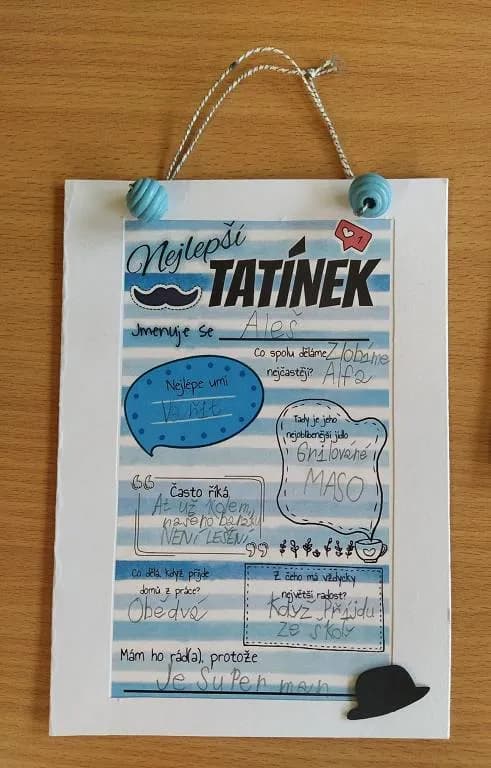 Nejlepší
TATÍNEK
1
Jmenuje se Aleš
Co spolu děláme Zlobíme
nejčastěji? Alfa
Nejlépe umí
Vařit
Tady je jeho
nejoblíbenější jídlo
Grilované
MASO
Často říká
Ať už kolem
našeho baráku
NENÍ LEŠENÍ
Co dělá, když přijde
domů z práce?
Obědvá
Z čeho má vždycky
největší radost?
Když Příjdu
ze školy
Mám ho rád(a), protože
Je SuPer man